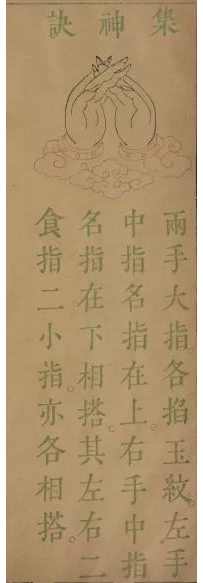 集神訣
兩手大指。各掐玉紋。左手
中指名指在上。右手中指
名指在下相搭。其左右二
食指二小指。亦各相搭。